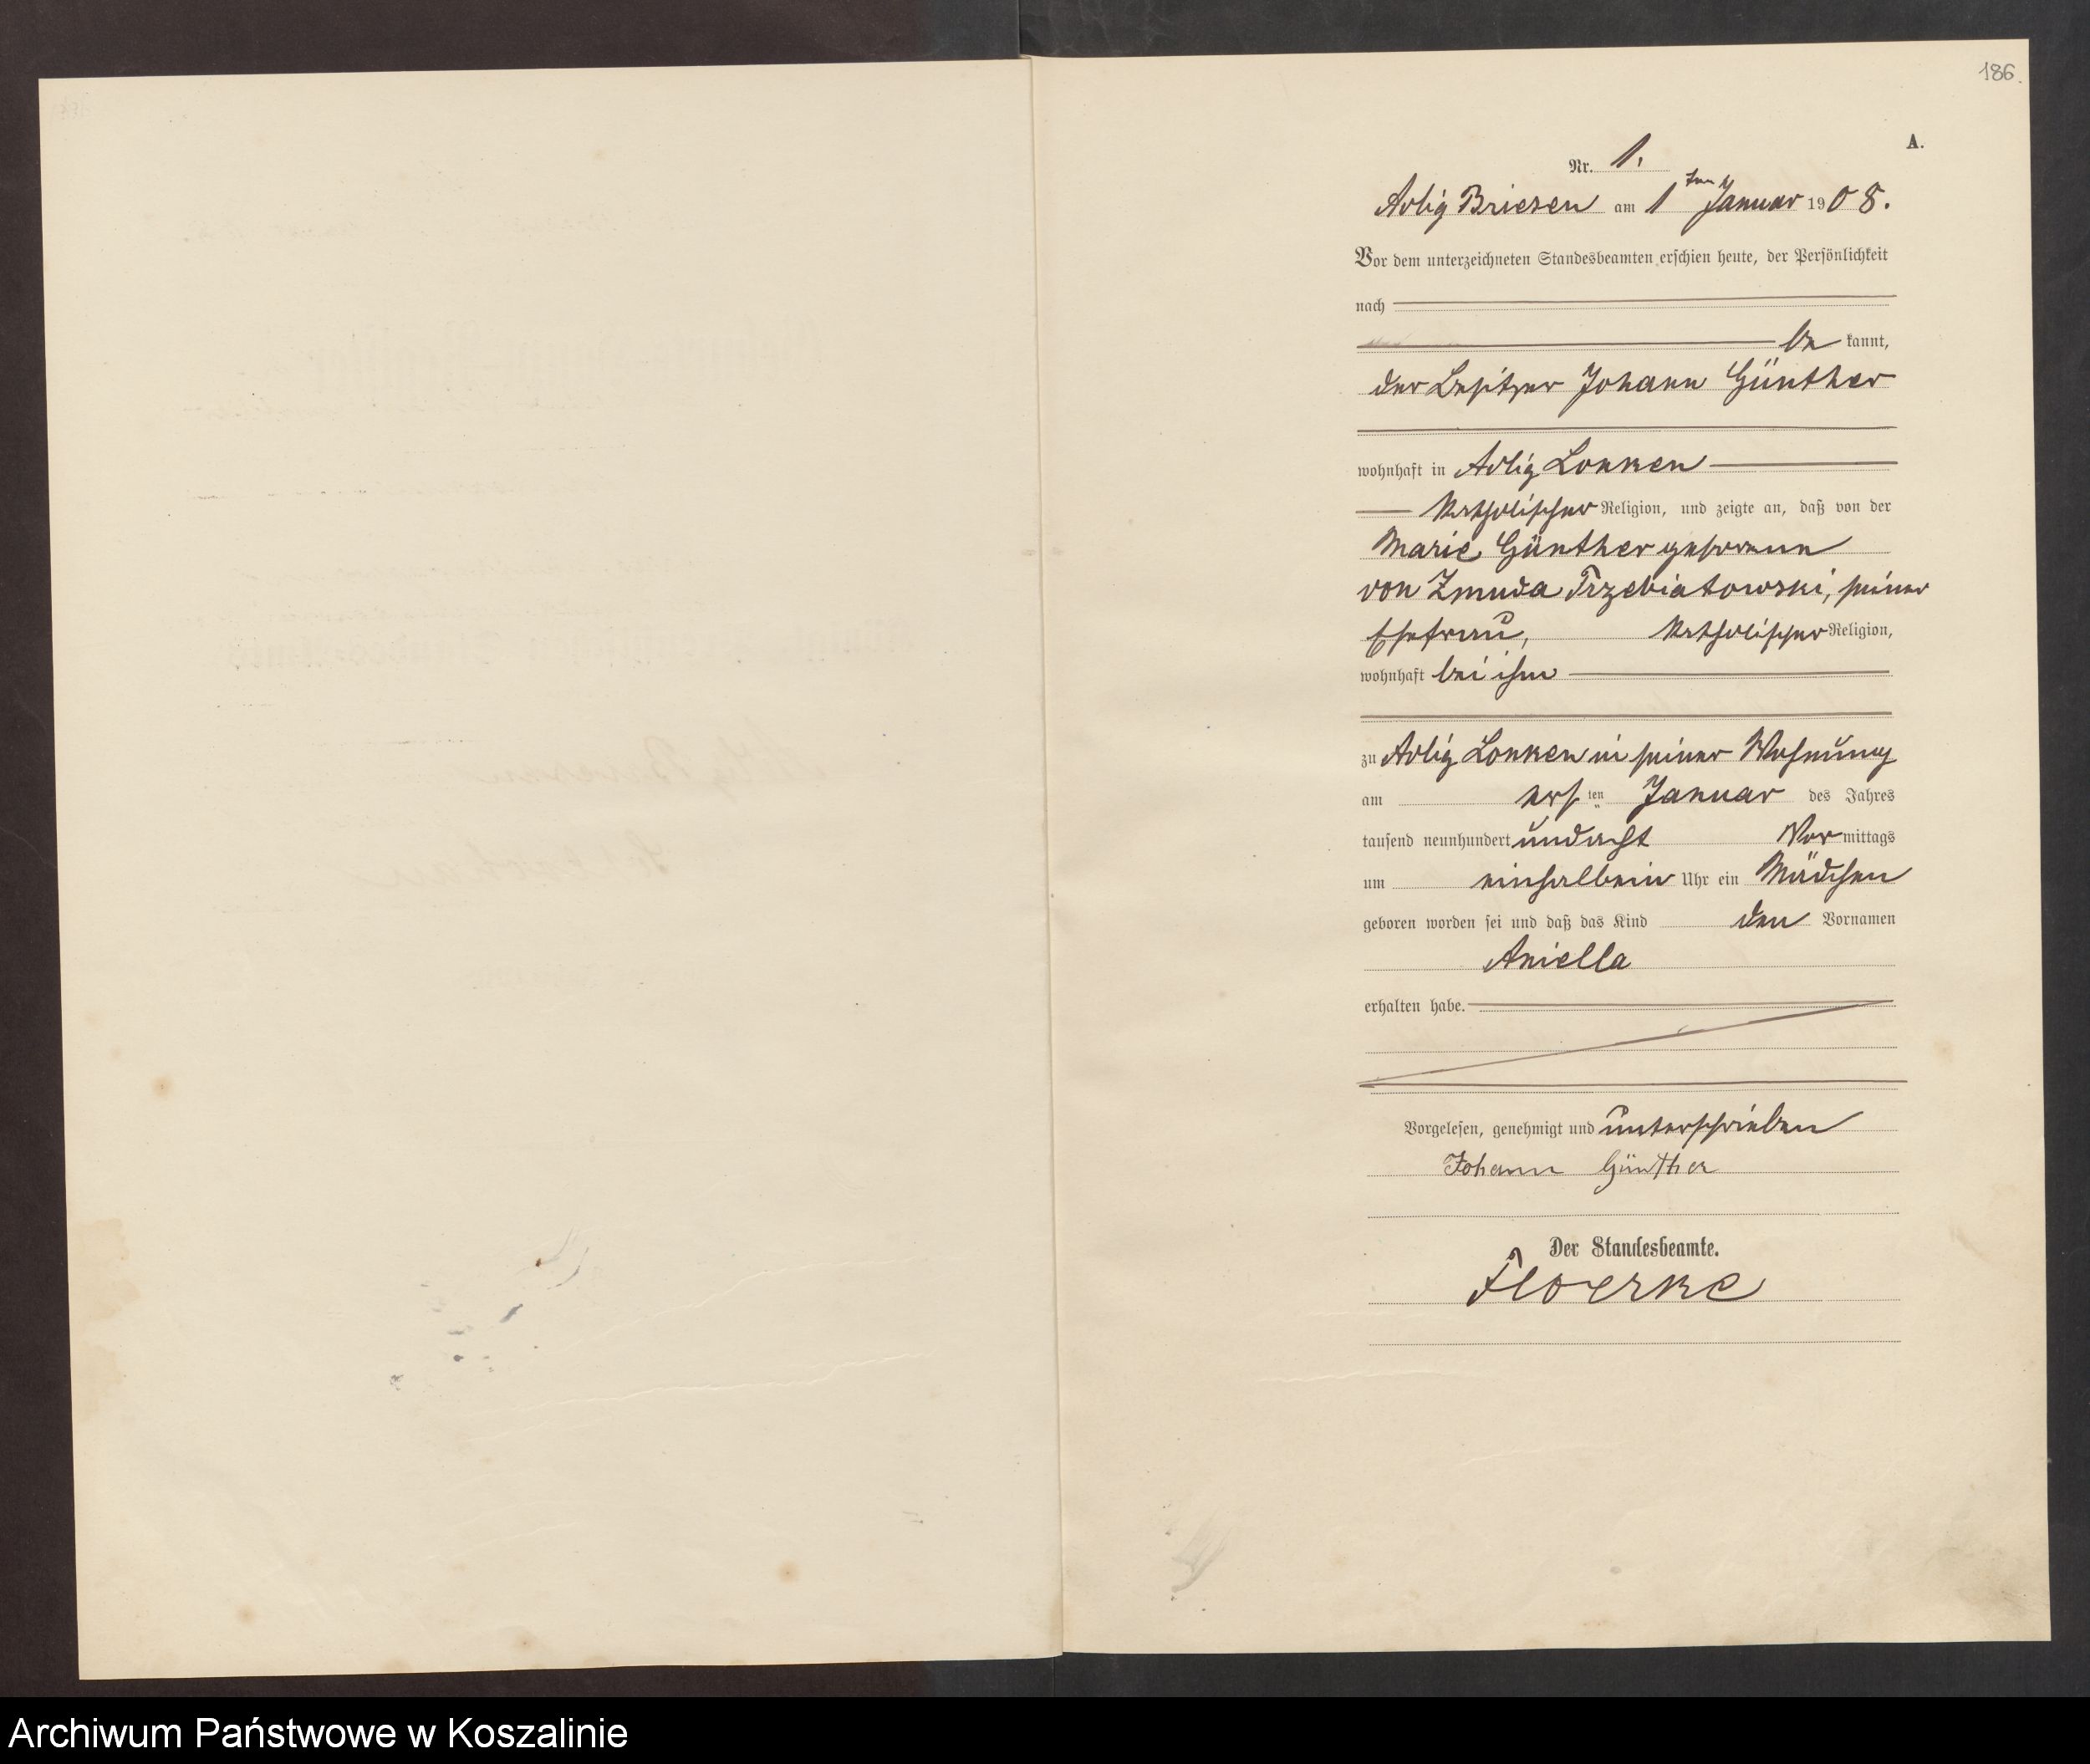 186.
A.
Nr. 1.
Adlig Briesen am 1ten Januar 1908.
Vor dem unterzeichneten Standesbeamten erschien heute, der Persönlichkeit
nach
be kannt,
der Besitzer Johann Günther
wohnhaft in Adlig Lonken
katholischer Religion, und zeigte an, daß von der
Marie Günther geborene
von Zmuda Trzebiatowski, seiner
Ehefrau, katholischer Religion,
wohnhaft bei ihm
zu Adlig Lonken in seiner Wohnung
am ersten Januar des Jahres
tausend neunhundert undacht Vormittags
um einhalbein Uhr ein Mädchen
geboren worden sei und daß das Kind den Vornamen
Aniella
erhalten habe.
Vorgelesen, genehmigt und unterschrieben
Johann Günther
Der Standesbeamte.
Floerke
Archiwum Państwowe w Koszalinie